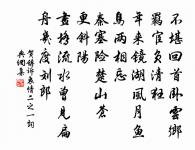 不堪回首臥雲鄉
羈宦負清狂
年來鏡湖風月魚
鳥兩相忘
秦塞險楚山蒼
更斜陽
畫橋流水曾見扁
舟幾度劉郎
賀鑄訴衷情二之一詞
典網集